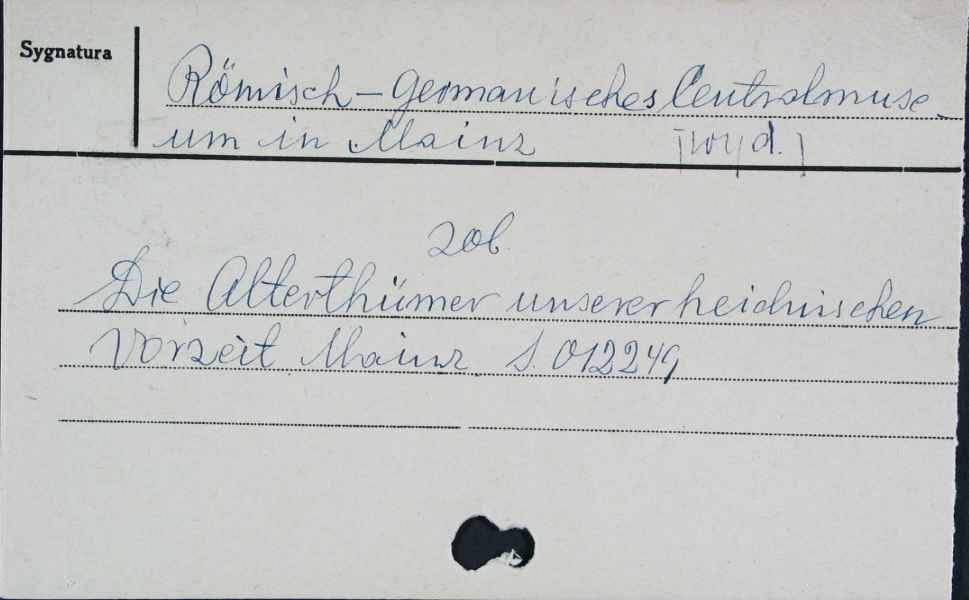 Sygnatura
Römisch-Germanisches Centralmuse
um in Mainz [wyd.]
zob.
Die Alterthümer unserer heidnischen
Vorzeit Mainz S. 012249